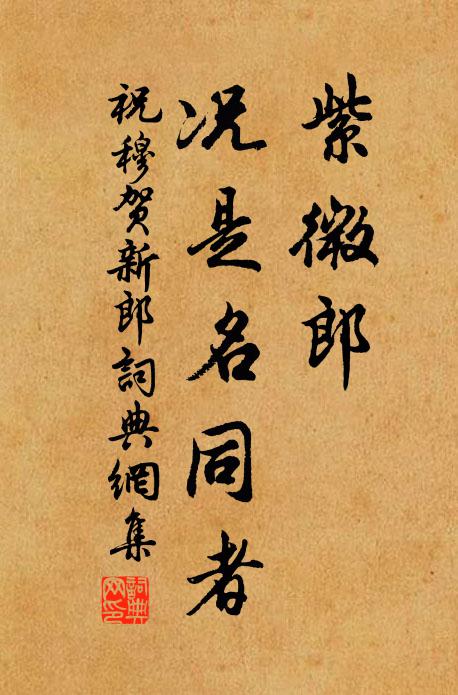 紫微郎
况是名同者
祝穆贺新郎詞典網集
詞典网印